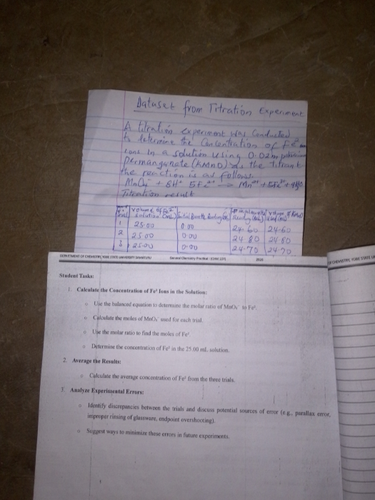 Dataset from Titration Experiment
A titration experiment was conducted
to determine the concentration of Fe²⁺
ions in a solution using 0.02m potassium
permanganate (KMNO₄) as the titrant
the reaction is as follows
MnO₄⁻ + 8H⁺ 5Fe²⁺ → Mn²⁺ + 5Fe³⁺ + 4H₂O
Titration result
Volume of Fe²⁺ solution (mL) Initial Burette Reading
1 25.00 0.00 24.60 24.60
2 25.00 0.00 24.80 24.80
3 25.00 0.00 24.75 24.75
Student Tasks:
1. Calculate the Concentration of Fe²⁺ Ions in the Solution:
o Use the balanced equation to determine the molar ratio of MnO₄⁻ to Fe²⁺.
o Calculate the moles of MnO₄⁻ used for each trial.
o Use the molar ratio to find the moles of Fe²⁺
o Determine the concentration of Fe²⁺ in the 25.00 mL solution.
2. Average the Results:
o Calculate the average concentration of Fe²⁺ from the three trials.
Analyze Experimental Errors:
o Identify discrepancies between the trials and discuss potential sources of error (e.g., parallax error,
improper rinsing of glassware, endpoint overshooting).
o Suggest ways to minimize these errors in future experiments.